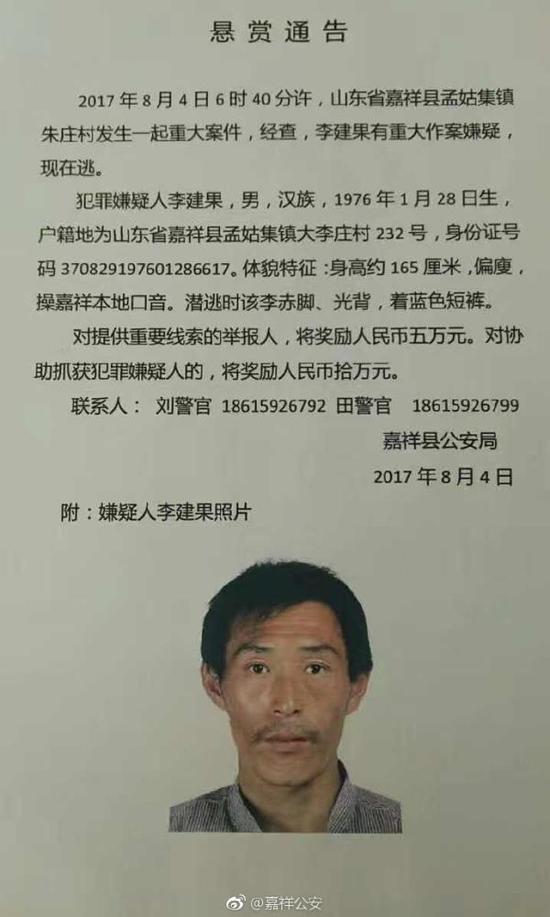 悬赏通告
2017年8月4日6时40分许，山东省嘉祥县孟姑集镇
朱庄村发生一起重大案件，经查，李建果有重大作案嫌疑，
现在逃。
犯罪嫌疑人李建果，男，汉族，1976年1月28日生，
户籍地为山东省嘉祥县孟姑集镇大李庄村232号，身份证号
码370829197601286617。体貌特征：身高约165厘米，偏廋，
操嘉祥本地口音。潜逃时该李赤脚、光背，着蓝色短裤。
对提供重要线索的举报人，将奖励人民币五万元。对协
助抓获犯罪嫌疑人的，将奖励人民币拾万元。
联系人：刘警官 18615926792 田警官 18615926799
嘉祥县公安局
2017年8月4日
附：嫌疑人李建果照片
@嘉祥公安